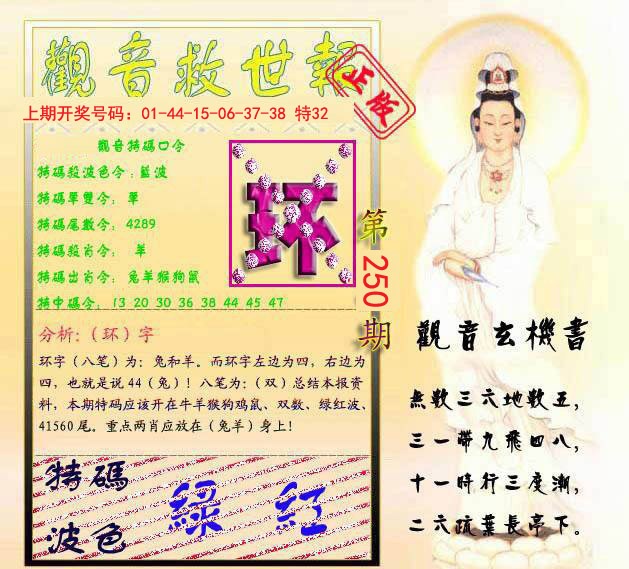 觀音救世報
正版
上期开奖号码：01-44-15-06-37-38 特32
觀音特碼口令
特碼殺波色令：藍波
特碼單雙令： 單
特碼尾數令： 4289
特碼殺肖令： 羊
特碼出肖令： 兔羊猴狗鼠
特中碼令： 13 20 30 36 38 44 45 47
环
第250期
分析:（环）字
环字（八笔）为: 兔和羊。而环字左边为四，右边为
四，也就是说44（兔）！八笔为:（双）总结本报资
料，本期特码应该开在牛羊猴狗鸡鼠、双数、绿红波、
41560尾。重点两肖应放在（兔羊）身上！
特碼
波色
綠 紅
觀音玄機書
無數三六地數五，
三一帶九飛四八，
十一時行三度潮，
二六疏葉長亭下。